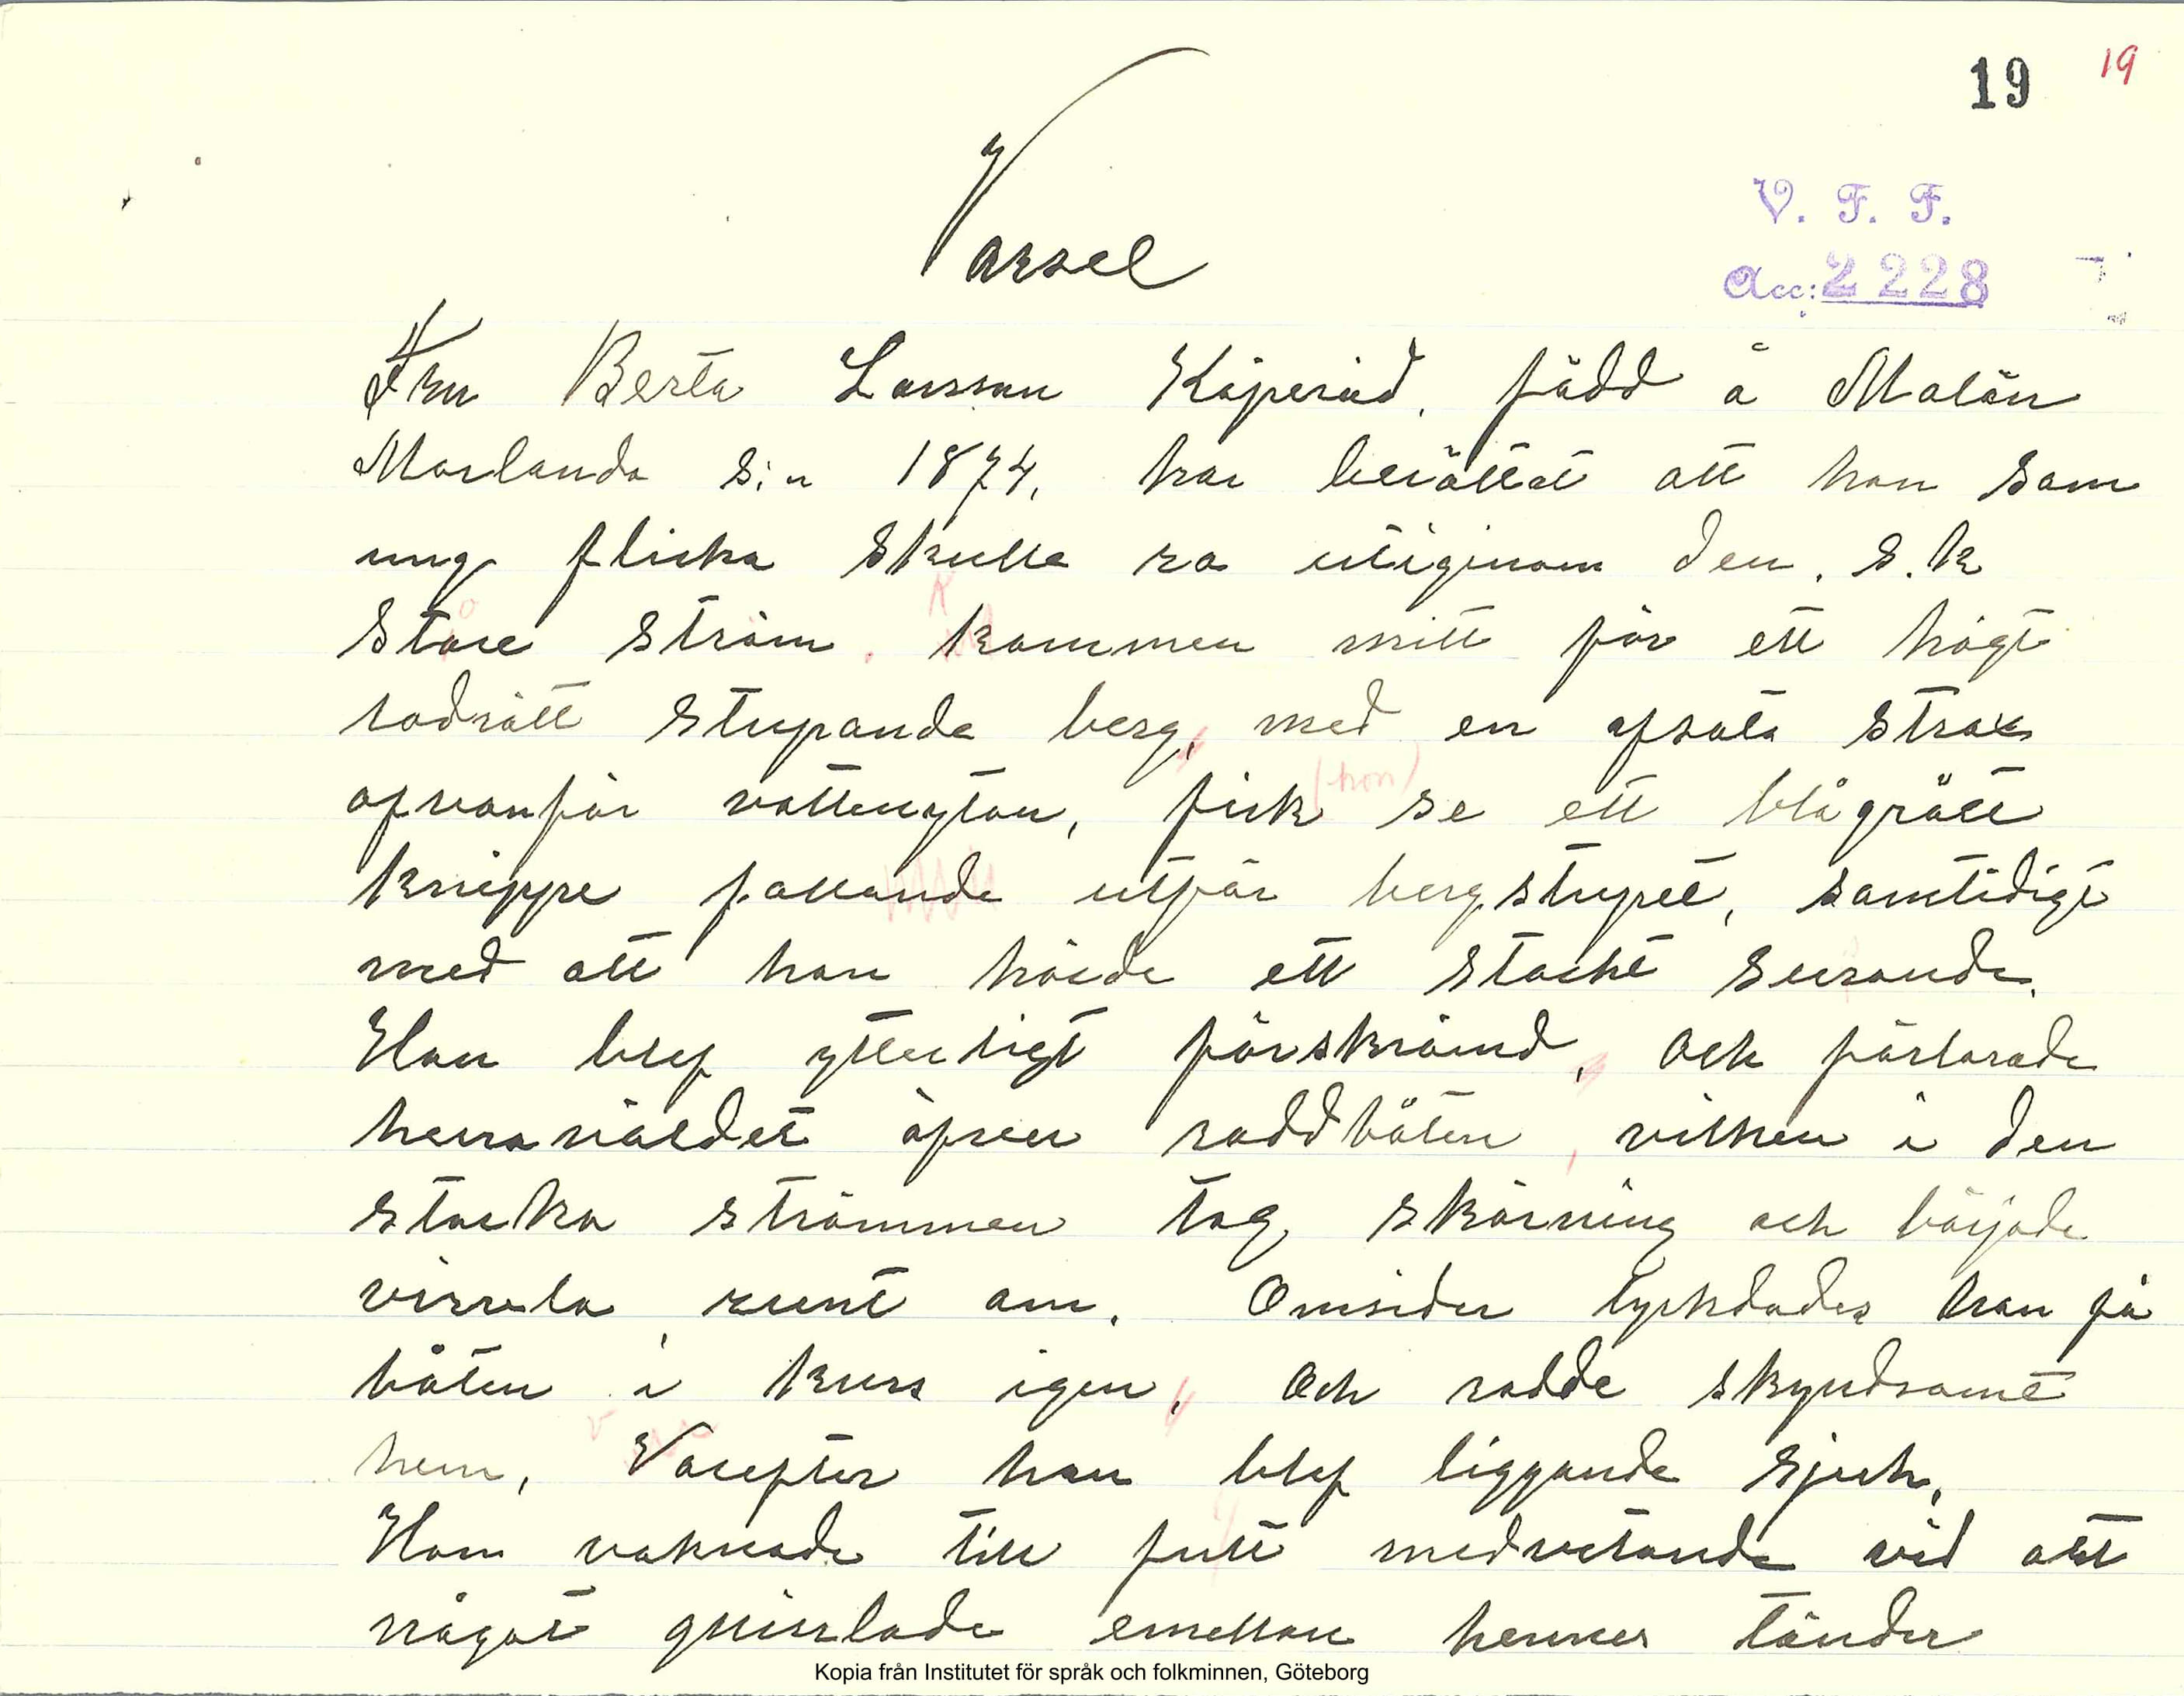 19 19
Varsel
V. F. F.
Acc: 2228
Fru Berta Larsson Köperöd, född å Malön
Morlanda s:n 1874, har berättat att hon som
ung flicka skulle ro utiginom den. s.k
Store ström. kommen mitt för ett högt
lodrätt stupande berg, med en afsats strax
ofvanför vattenytan, fick (hon) se ett blågrått
knippe fallande utför bergstupet, samtidigt
med att hon hörde ett starkt surrande.
Hon blef ytterligt förskrämd, och förlorade
herraväldet öfver roddbåten, vilken i den
starka strömmen tog skärning och började
virvla runt om. Omsider lyckdades hon få
båten i kurs igen, och rodde skyndsamt
hem, Varefter hon blef liggande sjuk.
Hon vaknade till fullt medvetande vid att
något gnisslade emellan hennes tänder
Kopia från Institutet för språk och folkminnen, Göteborg